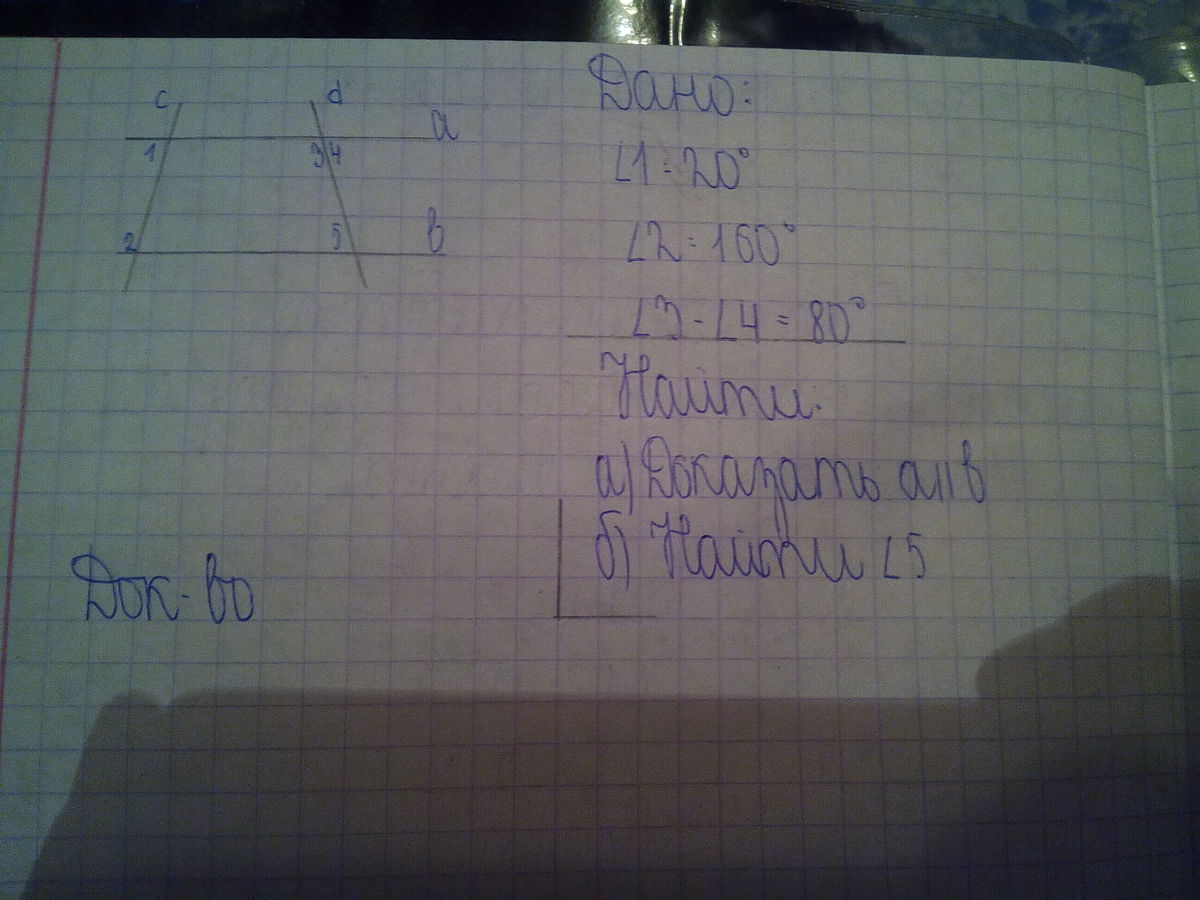 c d a
1 3 4
2 5 в
Дано:
∠1 = 20°
∠2 = 160°
∠3 - ∠4 = 80°
Найти:
а) Доказать a||в
б) Найти ∠5
Док-во